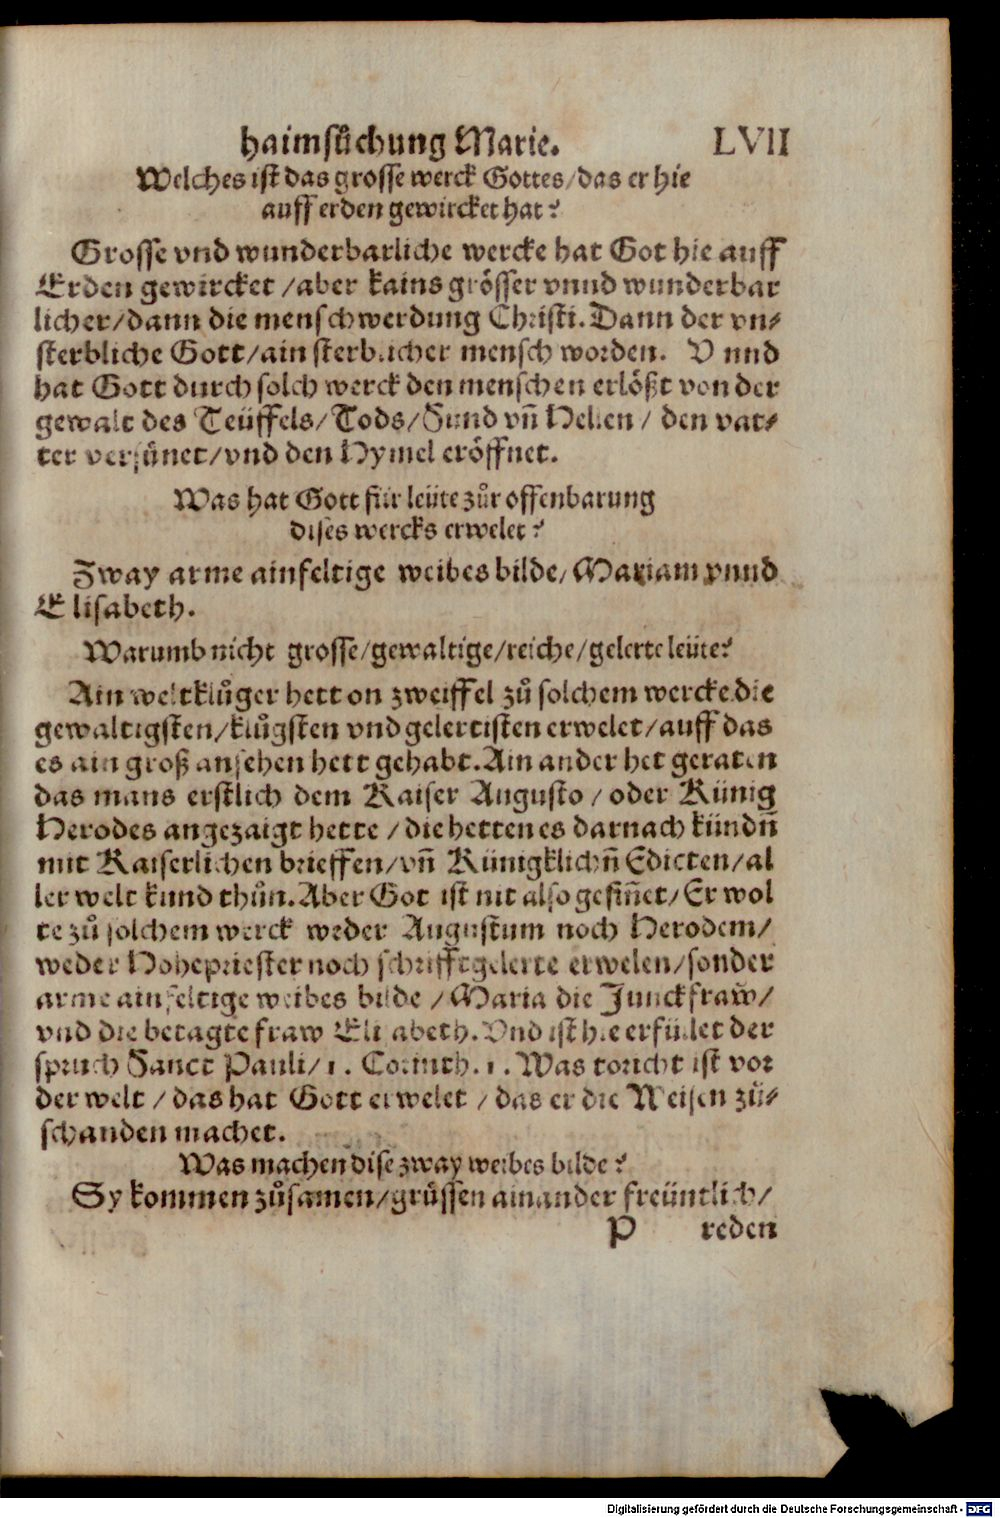 haimsůchung Marie. LVII
Welches ist das grosse werck Gottes/das er hie
auff erden gewircket hat?
Grosse vnd wunderbarliche wercke hat Got hie auff
Erden gewircket /aber kains grösser vnnd wunderbar
licher/dann die menschwerdung Christi. Dann der vn-
sterbliche Gott/ain sterblicher mensch worden. Vnnd
hat Gott durch solch werck den menschen erlößt von der
gewalt des Teüffels/Tods/Sünd vn̄ Hellen/ den vat-
ter versünet/vnd den Hymel eröffnet.
Was hat Gott für leüte zůr offenbarung
dises wercks erwelet?
Zway arme ainfeltige weibes bilde/Mariam vnnd
Elisabeth.
Warumb nicht grosse/gewaltige/reiche/gelerte leüte?
Ain weltklůger hett on zweiffel zů solchem wercke die
gewaltigsten/klůgsten vnd gelertisten erwelet/auff das
es ain groß ansehen hett gehabt. Ain ander het geraten
das mans erstlich dem Kaiser Augusto/oder Künig
Herodes angezaigt hette /die hetten es darnach kündn̄
mit Kaiserlichen brieffen/vn̄ Künigklichn̄ Edicten/al
ler welt kund thůn. Aber Got ist nit also gesiñet/Er wol
te zů solchem werck weder Augustum noch Herodem/
weder Hohepriester noch schrifftgelerte erwelen/sonder
arme ainfeltige weibes bilde /Maria die Junckfraw̃/
vnd die betagte fraw Elisabeth. Vnd ist hie erfüllet der
spruch Sanct Pauli/1. Corinth.1. Was toricht ist vor
der welt /das hat Gott erwelet /das er die Weisen zů-
schanden machet.
Was machen dise zway weibes bilde?
Sy kommen zůsamen/grůssen ainander freüntlich/
P reden
Digitalisierung gefördert durch die Deutsche Forschungsgemeinschaft - DFG